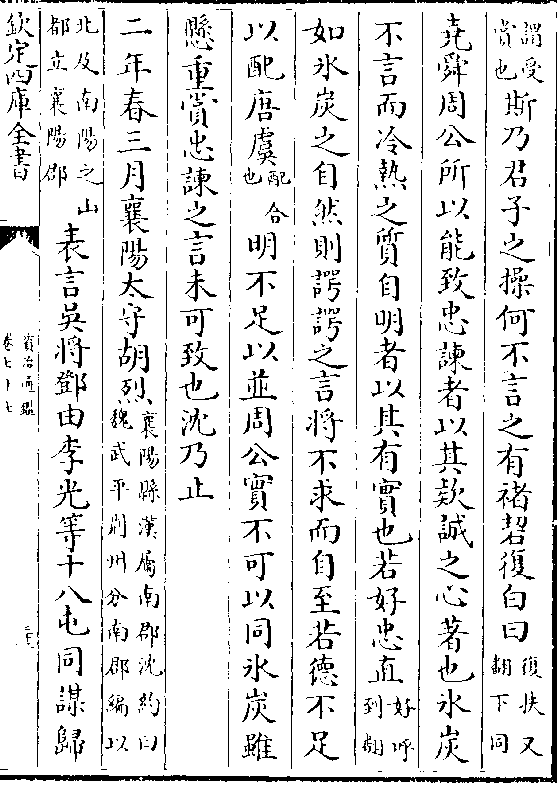 謂受賞也斯乃君子之操何不言之有禇䂮復白曰復扶又翻下同
堯舜周公所以能致忠諫者以其款誠之心著也氷炭
不言而冷熱之質自明者以其有實也若好忠直好呼到翻
如氷炭之自然則諤諤之言將不求而自至若德不足
以配唐虞配合也明不足以並周公實不可以同氷炭雖
懸重賞忠諫之言未可致也沈乃止
二年春三月襄陽太守胡烈襄陽縣漢屬南郡沈約曰魏武平荆州分南郡編以
北及南陽之山都立襄陽郡表言吳將鄧由李光等十八屯同謀歸
欽定四庫全書
資治通鑑
卷七十七